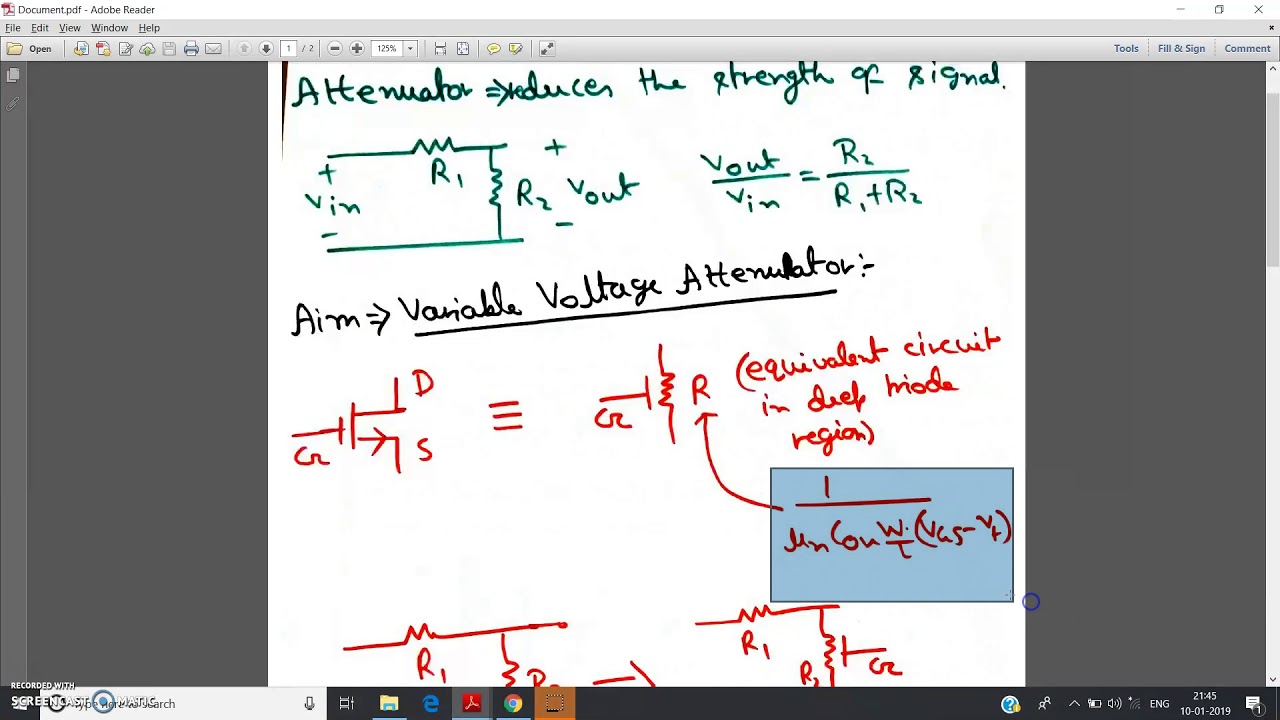 Document.pdf - Adobe Reader
File Edit View Window Help
Open 1 / 2 125% Tools Fill & Sign Comment
Attenuator ⇒ reduces the strength of signal.
+ R1 +
Vin R2 Vout
- -
Vout/Vin = R2/(R1+R2)
Aim ⇒ Variable Voltage Attenuator:-
G D S ≡ G R
(equivalent circuit
in deep triode
region)
1
μn Cox W/L (VGS-Vt)
R1 R2
R1 R2 G
RECORDED WITH
SCREENCAST MATIC
Type here to search
ENG 21:45
10-01-2019